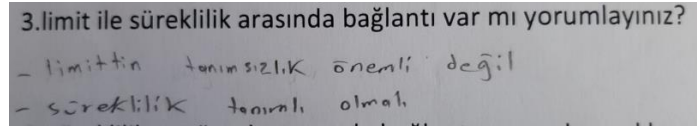 3.limit ile süreklilik arasında bağlantı var mı yorumlayınız?
- limittin tanımsızlık önemli değil
- süreklilik tanımlı olmalı